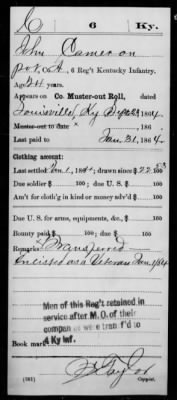 C 6 Ky.
John Cameron
Pvt, Co. A, 6 Reg't Kentucky Infantry.
Age 24 years.
Appears on Co. Muster-out Roll, dated
Louisville, Ky Sept 23, 1864.
Muster-out to date , 186 .
Last paid to Jan. 31, 1864.
Clothing account:
Last settled Jan 1, 1864; drawn since $ 22 53/100
Due soldier $ 100; due U. S. $ 100
Am't for cloth'g in kind or money adv'd $ 100
Due U. S. for arms, equipments, &c., $ 100
Bounty paid $ 100; due $ 100
Remarks: Transferred
Enlisted as a Veteran Jan. 1/64
Men of this Reg't retained in
service after M. O. of their
company were transf'd to
4 Ky Inf.
Book mark:
Taylor
(361) Copyist.